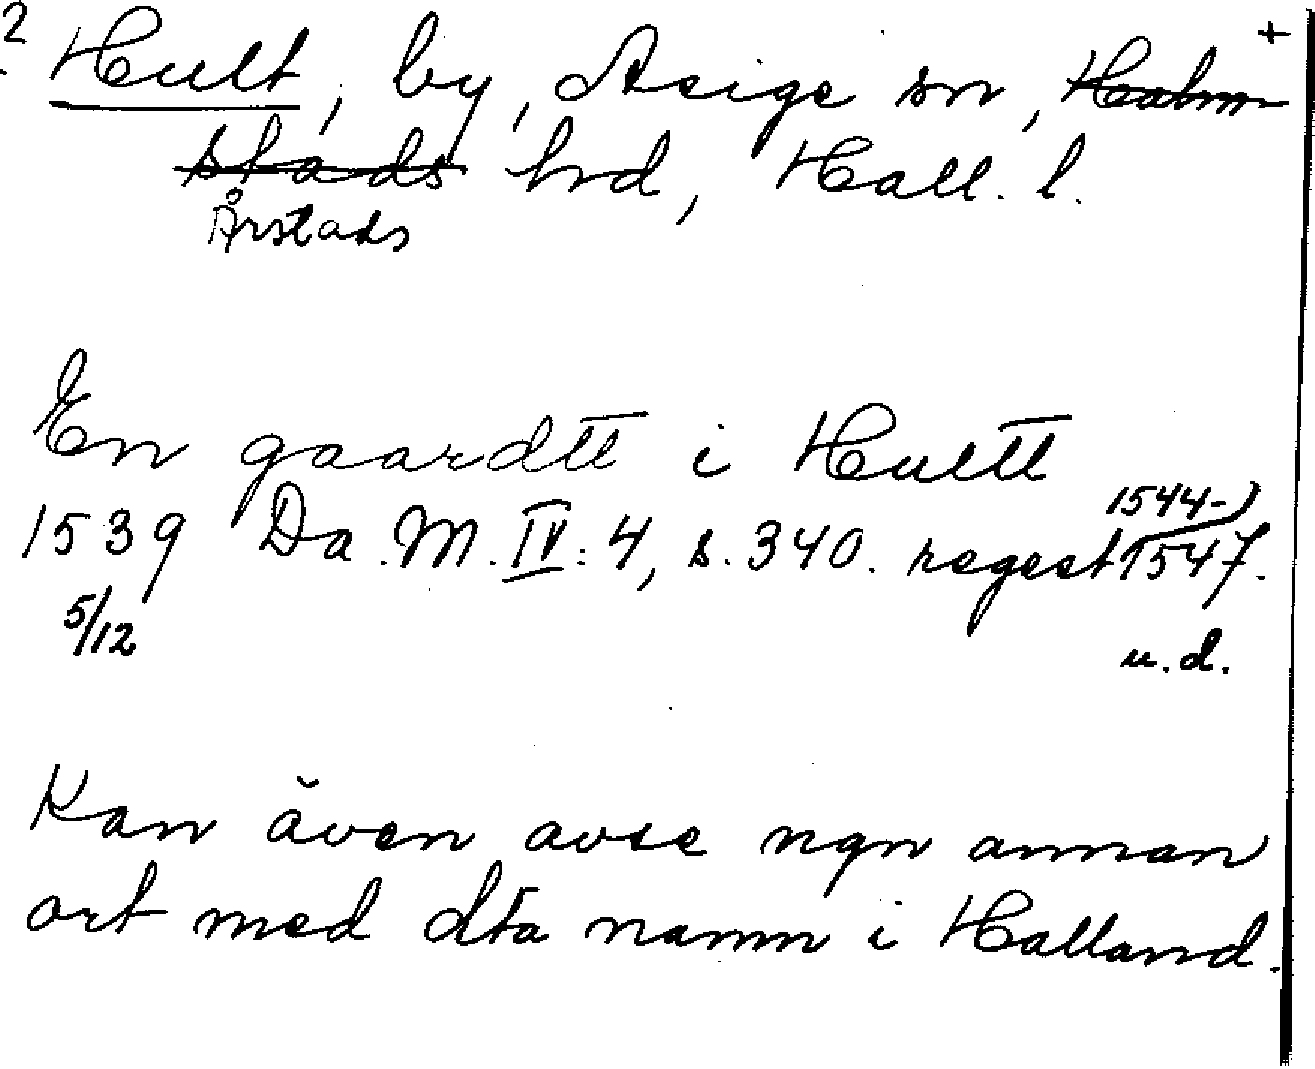 2 +
Hult, by, Asige sn, Halm-
stads hrd, Hall. l.
Årstads
En gaardtt i Hultt
1544-)
1539 Da. M. IV: 4, s. 340. regest 1547.
5/12 u.d.
Kan även avse ngn annan
ort med dta namn i Halland.